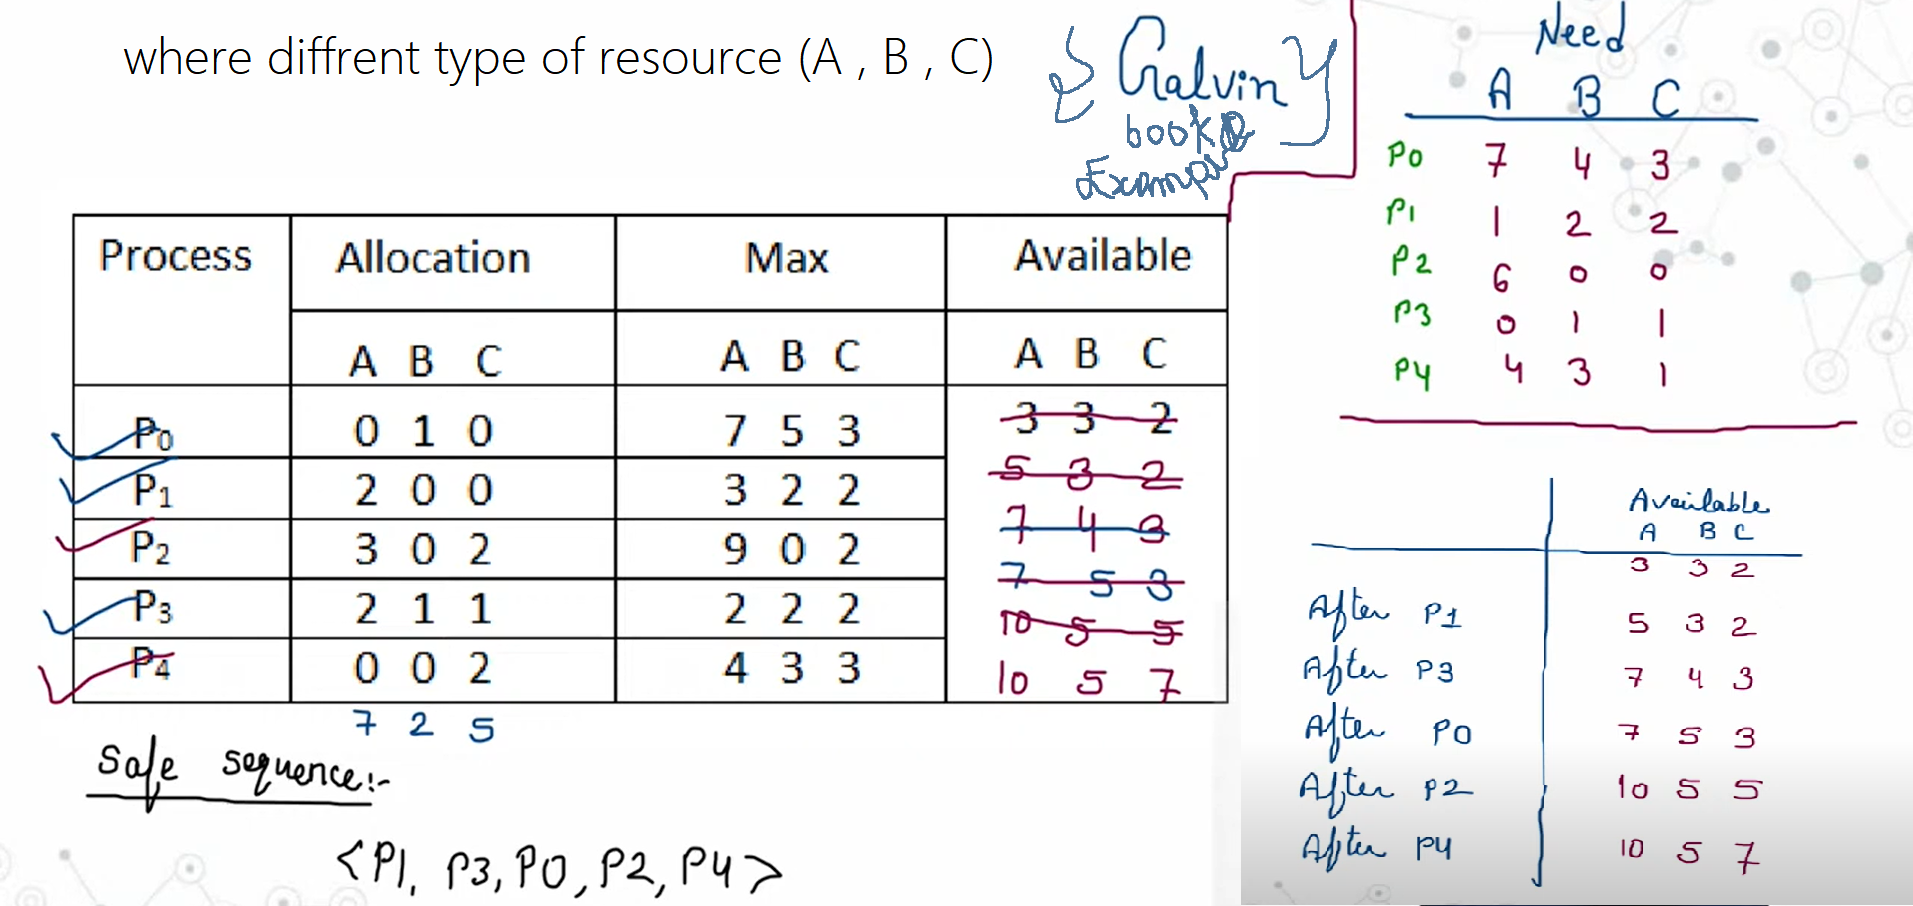 where diffrent type of resource (A , B , C)
{ Galvin }
book
Example
Process Allocation Max Available
A B C A B C A B C
P0 0 1 0 7 5 3 3 3 2
P1 2 0 0 3 2 2 5 3 2
P2 3 0 2 9 0 2 7 4 3
P3 2 1 1 2 2 2 7 5 3
10 5 5
P4 0 0 2 4 3 3 10 5 7
7 2 5
Safe sequence:-
<P1, P3, P0, P2, P4>
Need
A B C
P0 7 4 3
P1 1 2 2
P2 6 0 0
P3 0 1 1
P4 4 3 1
Available
A B C
3 3 2
After P1 5 3 2
After P3 7 4 3
After P0 7 5 3
After P2 10 5 5
After P4 10 5 7